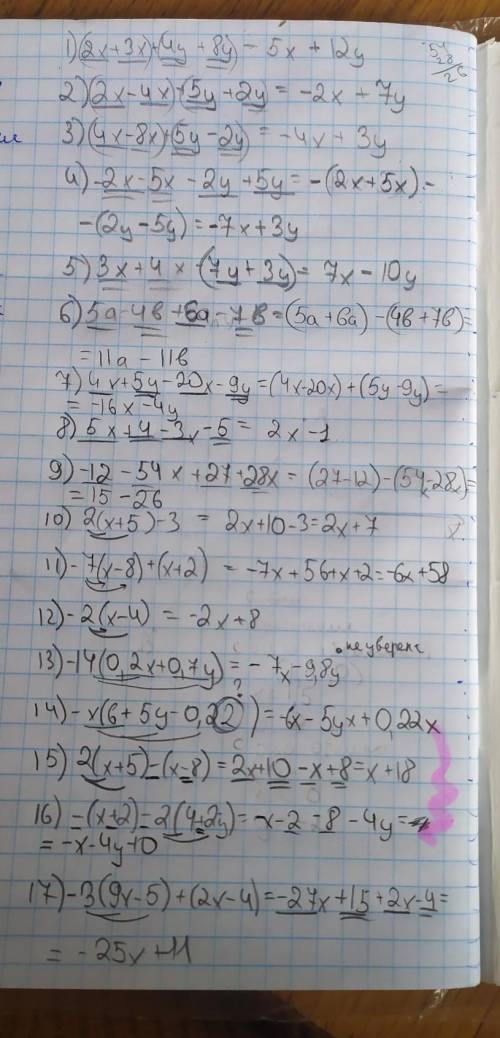 1) (2x+3x)+(4y+8y) - 5x + 12y
2) (2x-4x)+(5y+2y) = -2x + 7y
3) (4x-8x)+(5y-2y) = -4x + 3y
4) -2x-5x-2y+5y = -(2x+5x)-
-(2y-5y) = -7x+3y
5) 3x+4x-(7y+3y) = 7x-10y
6) 5a-4в+6a-7в=(5a+6a)-(4в+7в)=
=11a-11в
7) 4x+5y-20x-9y=(4x-20x)+(5y-9y)=
=-16x-4y
8) 5x+4-3x-5 = 2x-1
9) -12-54x+27+28x=(27-12)-(54x-28x)=
=15-26
10) 2(x+5)-3 = 2x+10-3=2x+7
11) -7(x-8)+(x+2) = -7x+56+x+2=-6x+58
12) -2(x-4) = -2x+8
не уверенг
13) -14(0,2x+0,7y) = -7x-9,8y
?
14) -x(6+5y-0,22) = -6x-5yx+0,22x
15) 2(x+5)-(x-8)=2x+10-x+8=x+18
16) -(x+2)-2(4+2y)=-x-2-8-4y=
=-x-4y+10
17) -3(9x-5)+(2x-4)=-27x+15+2x-4=
= -25x+11